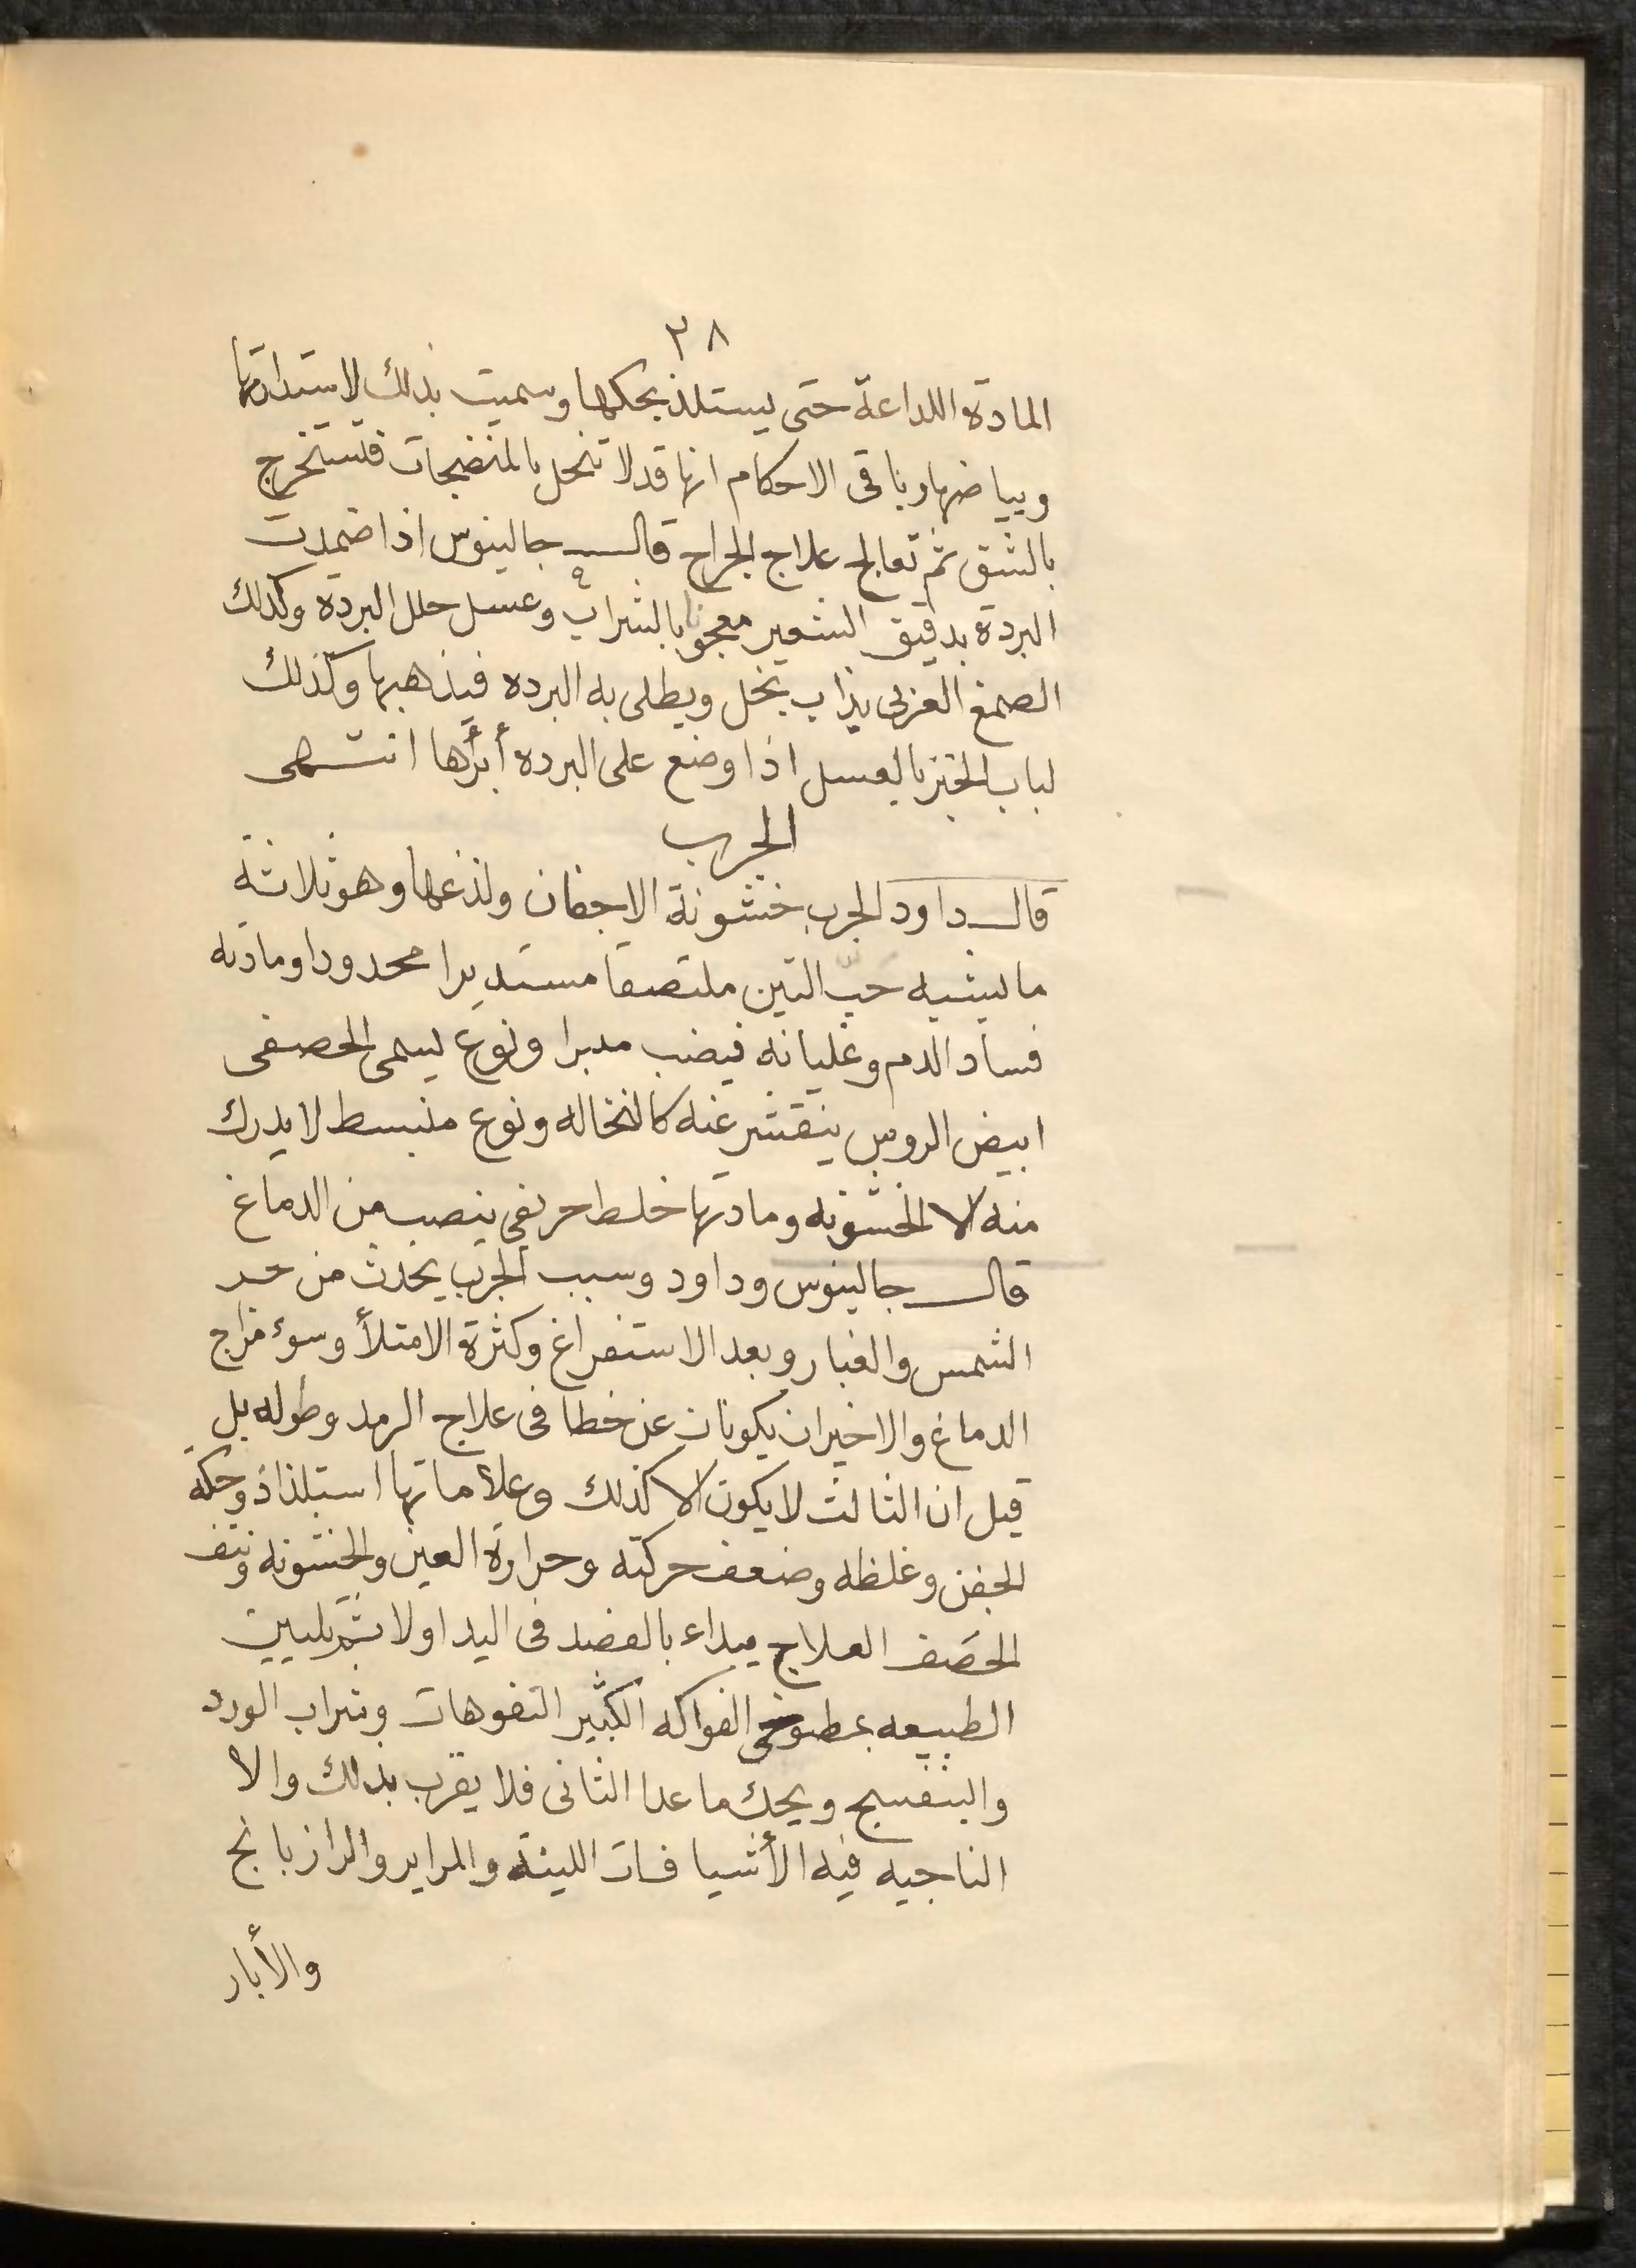 ٢٨
المادة اللداعة حتى يستلذ بحكها وسميت بذلك لاستدارتها
وبياضها وباقى الاحكام انها قد لا تنحل بالمنضجات فتستخرج
بالشق ثم تعالج علاج الجراح قال جالينوس اذا ضمدت
البردة بدقيق الشعير معجونا بالشراب وعسل حلل البردة وكذلك
الصمغ العربى يذاب بخل ويطلى به البرده فيذهبها وكذلك
لباب الخبز بالعسل اذا وضع على البرده أبرأها انتهى
الجرب
قال داود الجرب خشونة الاجفان ولذعها وهو ثلاثة
ما يشبه حب التين ملتصقا مستديرا محدودا ومادته
فساد الدم وغليانه فيضب مدبرا ونوع يسمى الحصفى
ابيض الروس ينقشر عنه كالنخاله ونوع منبسط لا يدرك
منه الا الخشونه ومادتها خلط حريفى ينصب من الدماغ
قال جالينوس وداود وسبب الجرب يحدث من حر
الشمس والغبار وبعد الاستفراغ وكثرة الامتلأ وسوء مزاج
الدماغ والاخيران يكونان عن خطا فى علاج الرمد وطوله بل
قيل ان الثالث لا يكون الا كذلك وعلاماتها استلذاذ وحكة
الجفن وغلظه وضعف حركته وحرارة العين والخشونه ونتف
الحصف العلاج يبداء بالفصد فى اليد اولا ثم تليين
الطبيعه بمطبوخى الفواكه الكثير التفوهات وشراب الورد
والبنفسج ويحك ماعدا الثانى فلا يقرب بذلك والا
الناجيه فيه الأشيافات اللينة والمراير والرازيانج
والأبار